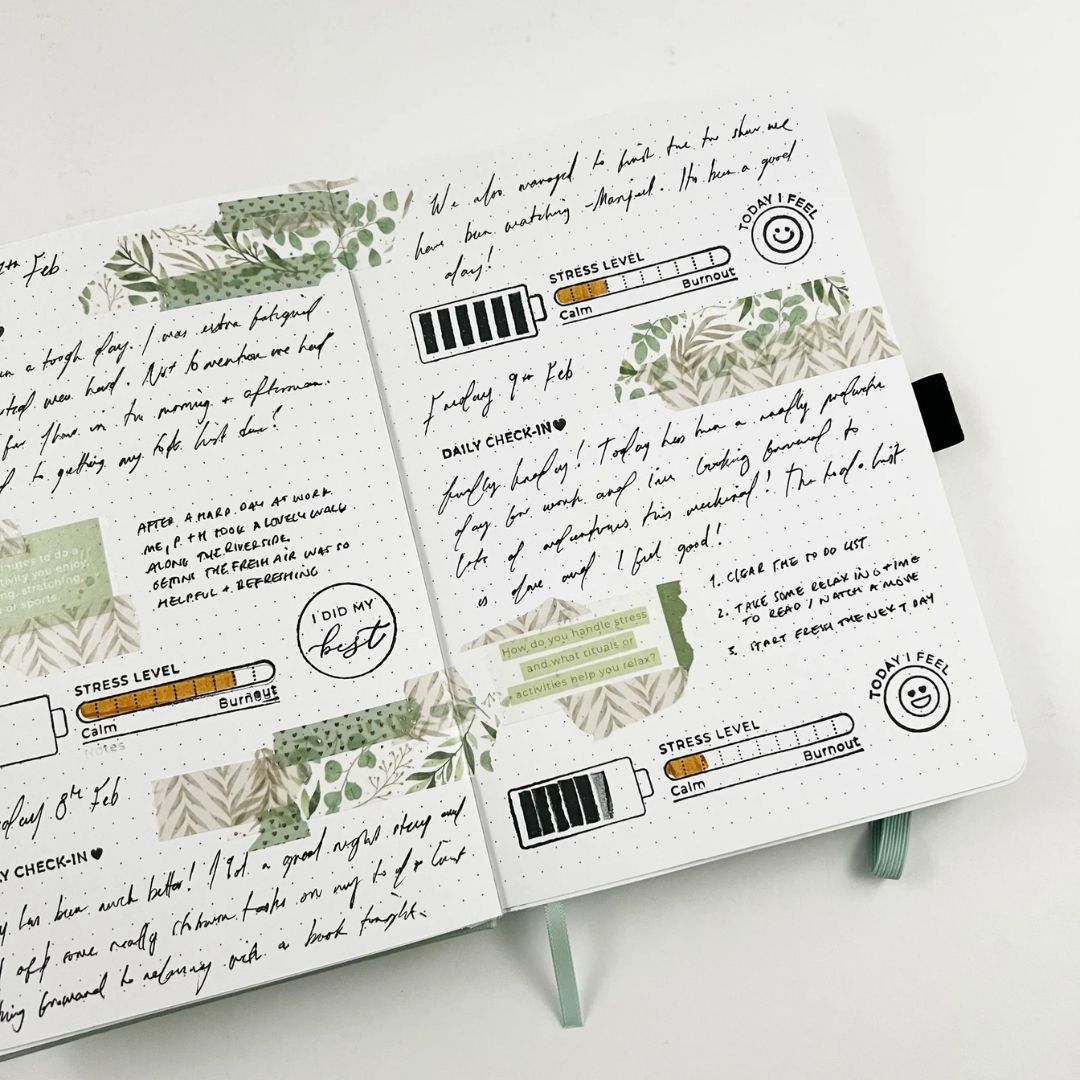 Feb
a tough day. I was extra fatigued
was hard. Not to mention we had
in the morning + afternoon.
to getting my
AFTER A HARD DAY AT WORK
ME, P. + H TOOK A LOVELY WALK
ALONG THE RIVERSIDE.
GETTING THE FRESH AIR WAS SO
HELPFUL + REFRESHING
inutes to do a
tivity you enjoy,
ng, stretching,
or sports.
I DID MY
best
STRESS LEVEL
Calm
Burnout
Notes
day 8th Feb
Y CHECK-IN
has been much better! I got a good night sleep and
off some really stubborn tasks on my to do list.
forward to relaxing with a book tonight.
We also managed to finish the tv show we
have been watching - Manifest. It's been a good
day!
TODAY I FEEL
STRESS LEVEL
Calm
Burnout
Friday 9th Feb
DAILY CHECK-IN
finally Friday! Today has been a really productive
day for work and I'm looking forward to
lots of adventures this weekend! The to do list
is done and I feel good!
1. CLEAR THE TO DO LIST.
2. TAKE SOME RELAXING TIME
TO READ / WATCH A MOVIE
3. START FRESH THE NEXT DAY
How do you handle stress
and what rituals or
activities help you relax?
TODAY I FEEL
STRESS LEVEL
Calm
Burnout